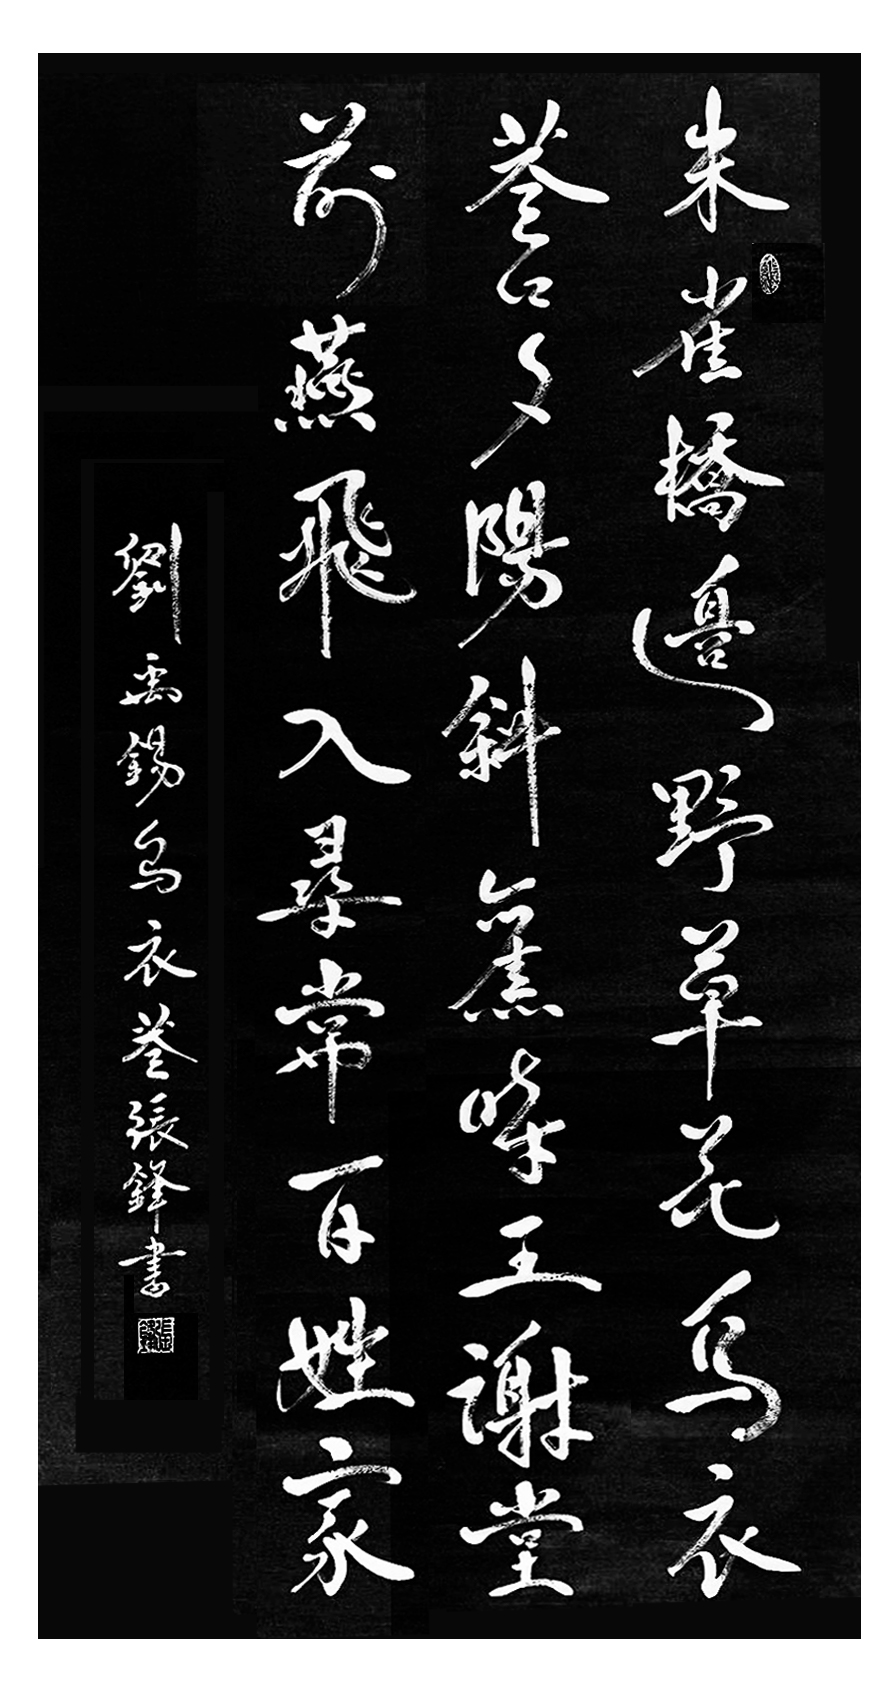 朱雀橋邊野草花烏衣
巷口夕陽斜舊時王謝堂
前燕飛入尋常百姓家
劉禹錫烏衣巷張鋒書